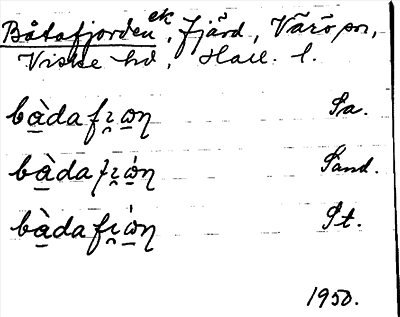 Båtafjorden ek, fjärd, Värö sn,
Viske hd, Hall. l.
bàdafɪ̯ωη Sa.
bàdafɪ̯ώη Sand.
bàdafɪ̯ώη St.
1950.